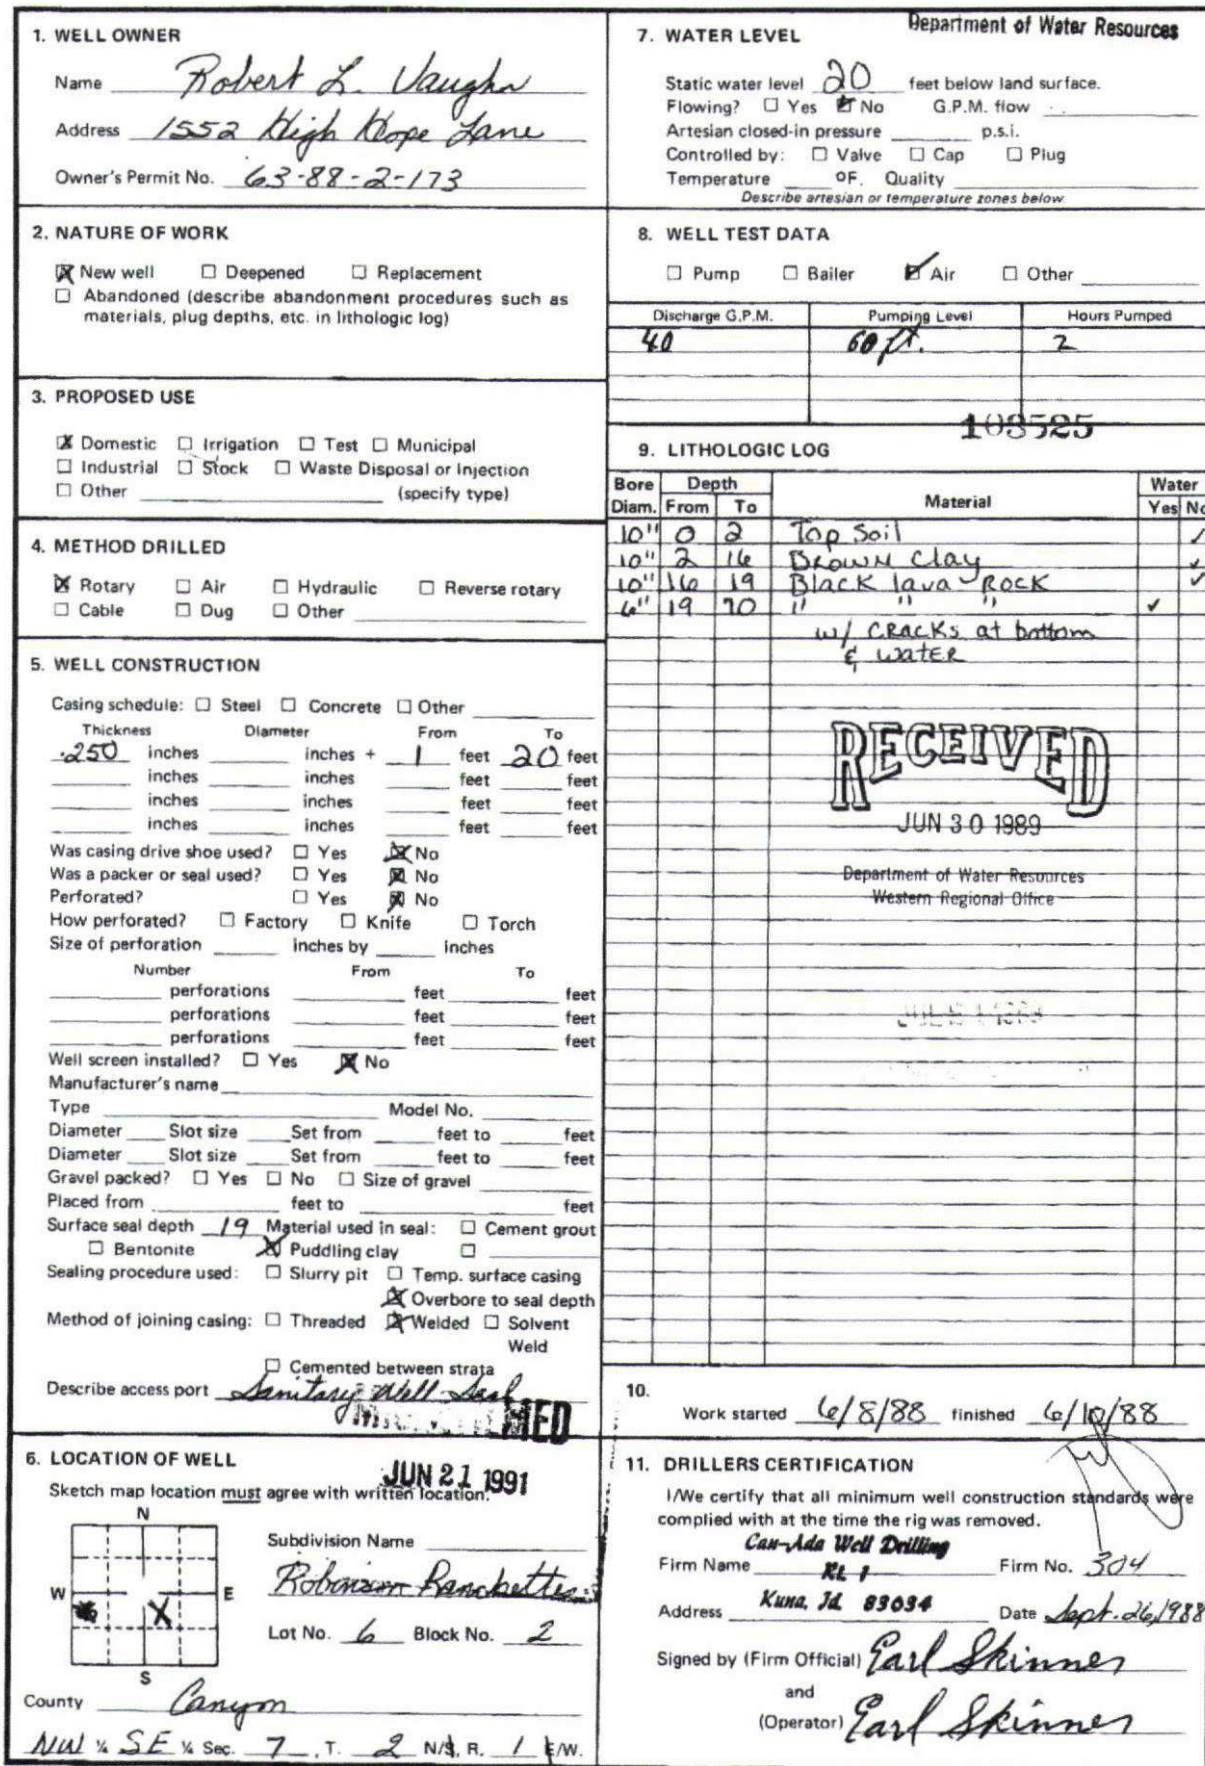 Department of Water Resources
1. WELL OWNER
Name Robert L. Vaughn
Address 1552 High Hope Lane
Owner's Permit No. 63-88-2-173
2. NATURE OF WORK
☒ New well ☐ Deepened ☐ Replacement
☐ Abandoned (describe abandonment procedures such as
materials, plug depths, etc. in lithologic log)
3. PROPOSED USE
☒ Domestic ☐ Irrigation ☐ Test ☐ Municipal
☐ Industrial ☐ Stock ☐ Waste Disposal or Injection
☐ Other (specify type)
4. METHOD DRILLED
☒ Rotary ☐ Air ☐ Hydraulic ☐ Reverse rotary
☐ Cable ☐ Dug ☐ Other
5. WELL CONSTRUCTION
Casing schedule: ☐ Steel ☐ Concrete ☐ Other
Thickness Diameter From To
.250 inches inches + 1 feet 20 feet
inches inches feet feet
inches inches feet feet
inches inches feet feet
Was casing drive shoe used? ☐ Yes ☒ No
Was a packer or seal used? ☐ Yes ☒ No
Perforated? ☐ Yes ☒ No
How perforated? ☐ Factory ☐ Knife ☐ Torch
Size of perforation inches by inches
Number From To
perforations feet feet
perforations feet feet
perforations feet feet
Well screen installed? ☐ Yes ☒ No
Manufacturer's name
Type Model No.
Diameter Slot size Set from feet to feet
Diameter Slot size Set from feet to feet
Gravel packed? ☐ Yes ☐ No ☐ Size of gravel
Placed from feet to feet
Surface seal depth 19 Material used in seal: ☐ Cement grout
☐ Bentonite ☒ Puddling clay ☐
Sealing procedure used: ☐ Slurry pit ☐ Temp. surface casing
☒ Overbore to seal depth
Method of joining casing: ☐ Threaded ☒ Welded ☐ Solvent
Weld
☐ Cemented between strata
Describe access port Sanitary Well Seal
6. LOCATION OF WELL
JUN 21 1991
Sketch map location must agree with written location.
N
W E
X
S
Subdivision Name
Robinson Ranchettes
Lot No. 6 Block No. 2
County Canyon
NW ¼ SE ¼ Sec. 7, T. 2 N/S, R. 1 E/W.
7. WATER LEVEL
Static water level 20 feet below land surface.
Flowing? ☐ Yes ☒ No G.P.M. flow
Artesian closed-in pressure p.s.i.
Controlled by: ☐ Valve ☐ Cap ☐ Plug
Temperature ºF. Quality
Describe artesian or temperature zones below.
8. WELL TEST DATA
☐ Pump ☐ Bailer ☒ Air ☐ Other
Discharge G.P.M. Pumping Level Hours Pumped
40 60 ft. 2
103525
9. LITHOLOGIC LOG
Bore Depth Water
Diam. From To Material Yes No
10" 0 2 Top Soil ✓
10" 2 16 Brown Clay ✓
10" 16 19 Black lava - Rock ✓
6" 19 70 " " " ✓
w/ cracks at bottom
& water
RECEIVED
JUN 30 1989
Department of Water Resources
Western Regional Office
10.
Work started 6/8/88 finished 6/10/88
11. DRILLERS CERTIFICATION
I/We certify that all minimum well construction standards were
complied with at the time the rig was removed.
Can-Ada Well Drilling
Firm Name Rt. 1 Firm No. 304
Address Kuna, Id. 83634 Date Sept. 26, 1988
Signed by (Firm Official) Earl Skinner
and
(Operator) Earl Skinner